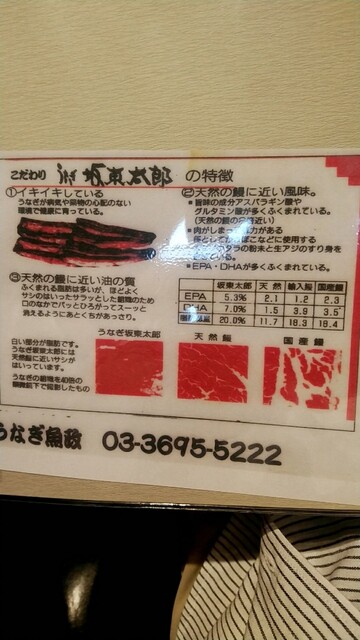 こだわり うなぎ 坂東太郎 の特徴
①イキイキしている
うなぎが病気や薬物の心配のない
環境で健康に育っている。
②天然の鰻に近い風味。
■旨味の成分アスパラギン酸や
グルタミン酸が多くふくまれている。
(天然の鰻の
肉がしまって
がある
ぼこなどに使用する
タラの粉末と生アジのすり身を
ている。
■EPA・DHAが多くふくまれている。
③天然の鰻に近い油の質
ふくまれる脂肪は多いが、ほどよく
サシのはいったサラッとした組織のため
口のなかでパッとひろがってスーッと
消えるようにあとくちがあっさり。
坂東太郎 天然 輸入鰻 国産鰻
EPA 5.3% 2.1 1.2 2.3
DHA 7.0% 1.5 3.9 3.5
20.0% 11.7 18.3 18.4
うなぎ坂東太郎 天然鰻 国産鰻
白い部分が脂肪です。
うなぎ坂東太郎には
天然鰻に近いサシが
はいっています。
うなぎの組織を40倍の
顕微鏡下で撮影したもの
うなぎ魚政 03-3695-5222